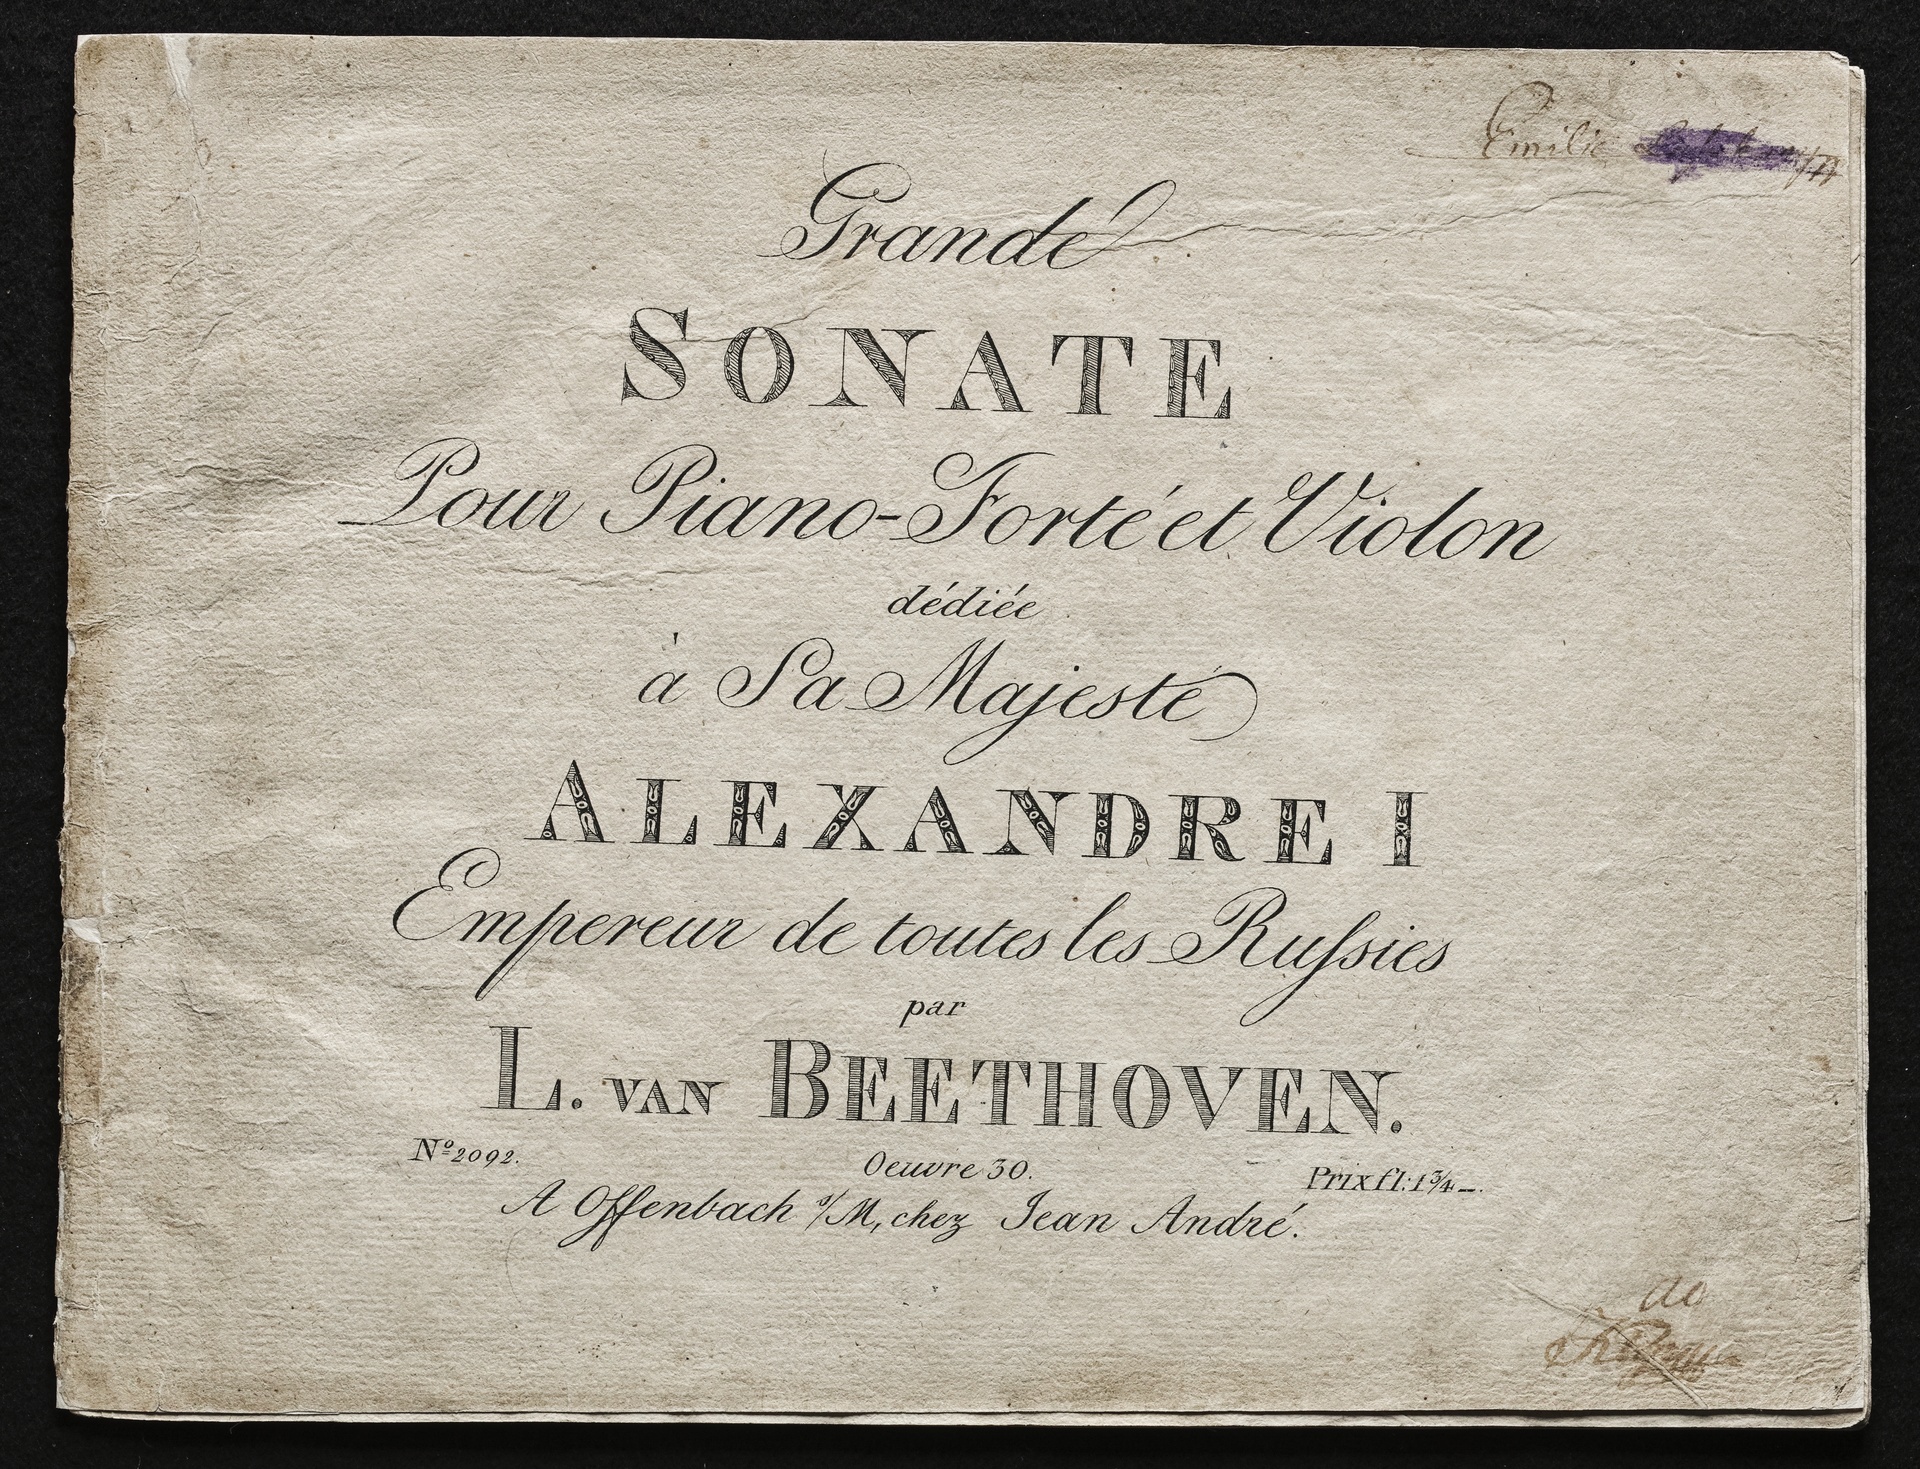 Emilie
Grande
SONATE
Pour Piano-Forté et Violon
dédiée
à Sa Majesté
ALEXANDRE I
Empereur de toutes les Ruſsies
par
L. VAN BEETHOVEN.
Nº 2092.
Oeuvre 30.
Prix fl: 1 3/4 _.
A Offenbach s/M, chez Jean André.